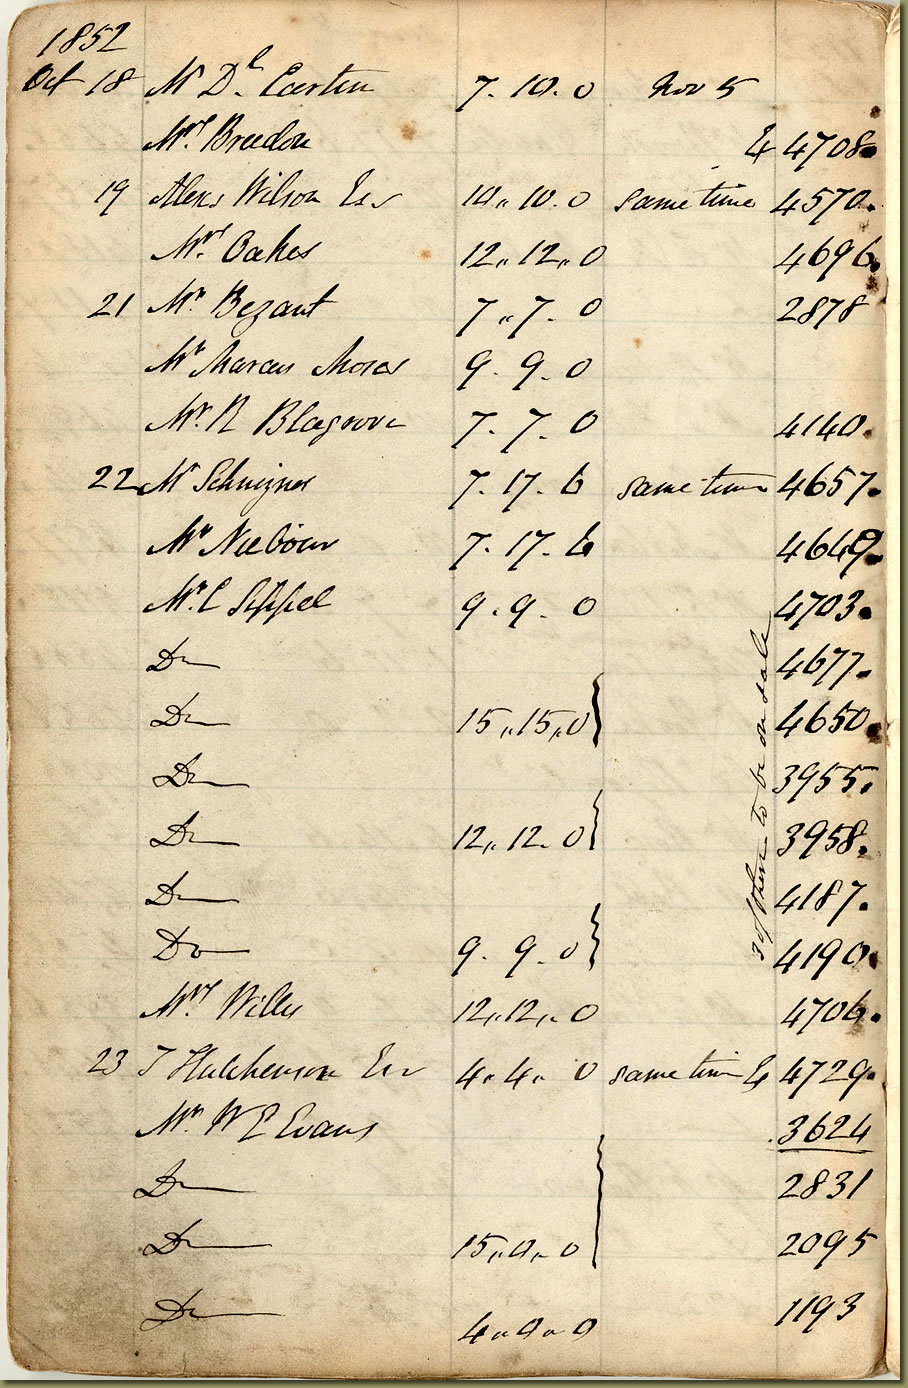 1852
Oct 18 Mr Dl Carten 7. 10. 0 Nov 5
Mrs Breedon & 4708.
19 Alexr Wilson Esr 10,, 10. 0 same time 4570.
Mrs Oakes 12,, 12,, 0 4696.
21 Mr Bezant 7 ,, 7. 0 2878
Mr Marcus Moses 9. 9. 0
Mr. R Blagrove 7. 7. 0 4140.
22 Mr 7. 17. 6 same time 4657.
Mr Niebour 7. 17. 6 4649.
Mr. C Sippel 9. 9. 0 4703.
Do 4677.
Do 15,, 15,, 0 } 4650.
Do 3955.
Do 12,, 12. 0 } 3958.
Do 4187.
Do 9. 9. 0 } 4190.
3 of them to be on sale
Mrs Willis 12,, 12,, 0 4706.
23 J Hutchenson Esr 4,, 4,, 0 same time & 4729.
Mr. W E Evans 3624
Do 2831
Do 15,, 0,, 0 } 2095
Do 4,, 0,, 0 1193